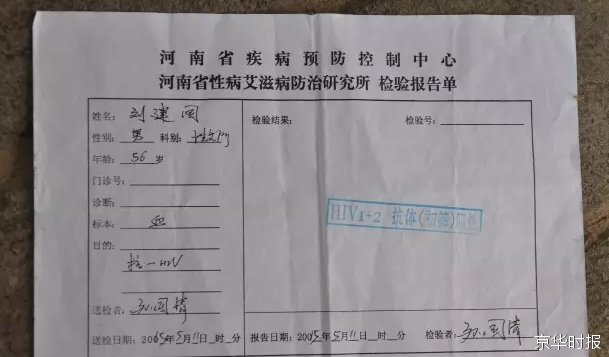 河南省疾病预防控制中心
河南省性病艾滋病防治研究所 检验报告单
姓名: 刘建闯
性别: 男 科别:
年龄: 56 岁
门诊号:
诊断:
标本: 血
目的:
抗-HIV
送检者:
送检日期: 2005年5月11日 时 分
检验结果:
检验号:
HIV1+2 抗体(初筛)
报告日期: 2005年5月11日 时 分
检验者:
京华时报